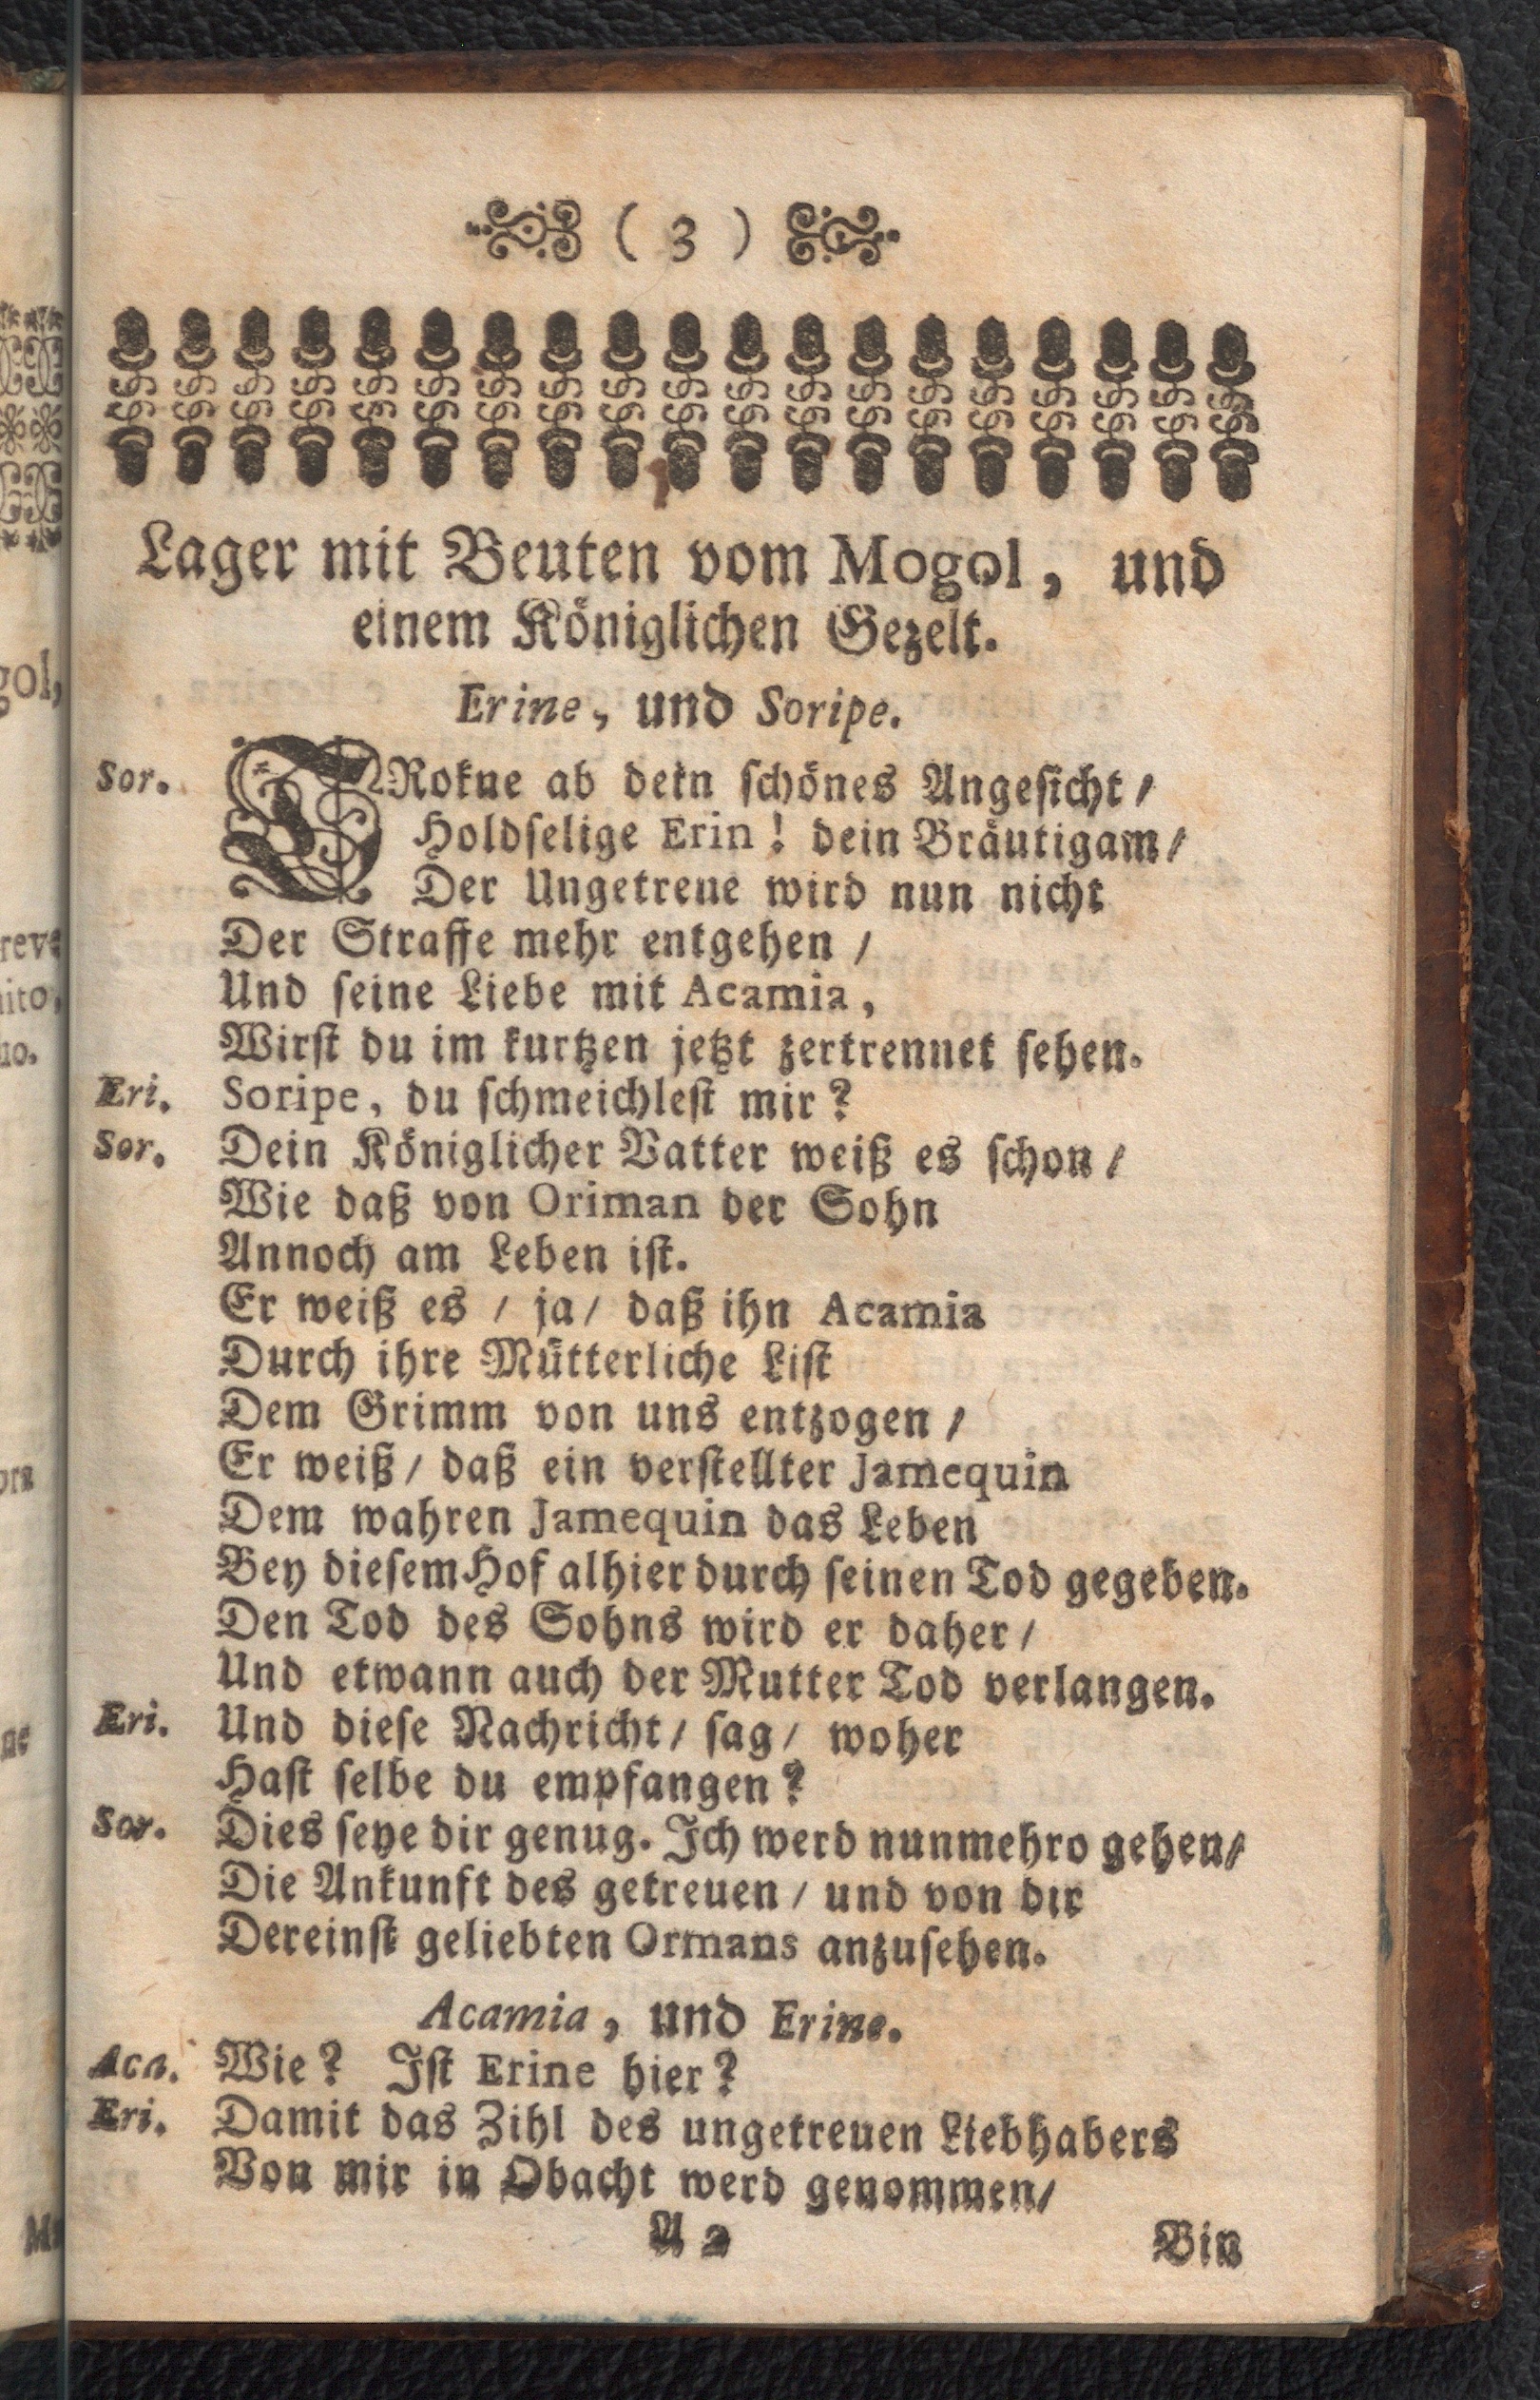 ( 3 )
Lager mit Beuten vom Mogol, und
einem Königlichen Gezelt.
Erine, und Soripe.
Sor. TRokne ab dein schönes Angesicht /
Holdselige Erin! dein Bräutigam /
Der Ungetreue wird nun nicht
Der Straffe mehr entgehen /
Und seine Liebe mit Acamia,
Wirst du im kurtzen jetzt zertrennet sehen.
Eri. Soripe, du schmeichlest mir?
Sor. Dein Königlicher Vatter weiß es schon /
Wie daß von Oriman der Sohn
Annoch am Leben ist.
Er weiß es / ja / daß ihn Acamia
Durch ihre Mütterliche List
Dem Grimm von uns entzogen /
Er weiß / daß ein verstellter Jamequin
Dem wahren Jamequin das Leben
Bey diesem Hof alhier durch seinen Tod gegeben.
Den Tod des Sohns wird er daher /
Und etwann auch der Mutter Tod verlangen.
Eri. Und diese Nachricht / sag / woher
Hast selbe du empfangen?
Sor. Dies seye dir genug. Ich werd nunmehro gehen /
Die Ankunft des getreuen / und von dir
Dereinst geliebten Ormans anzusehen.
Acamia, und Erine.
Aca. Wie? Ist Erine hier?
Eri. Damit das Zihl des ungetreuen Liebhabers
Von mir in Obacht werd genommen /
A 2 Bin